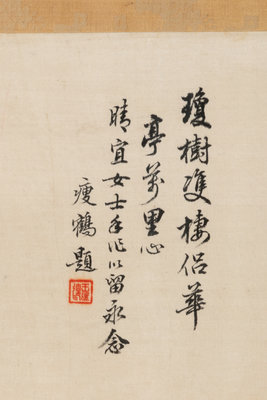 瓊樹雙棲侶華
亭萬里心
晴宜女士手作以留永念
瘦鶴題